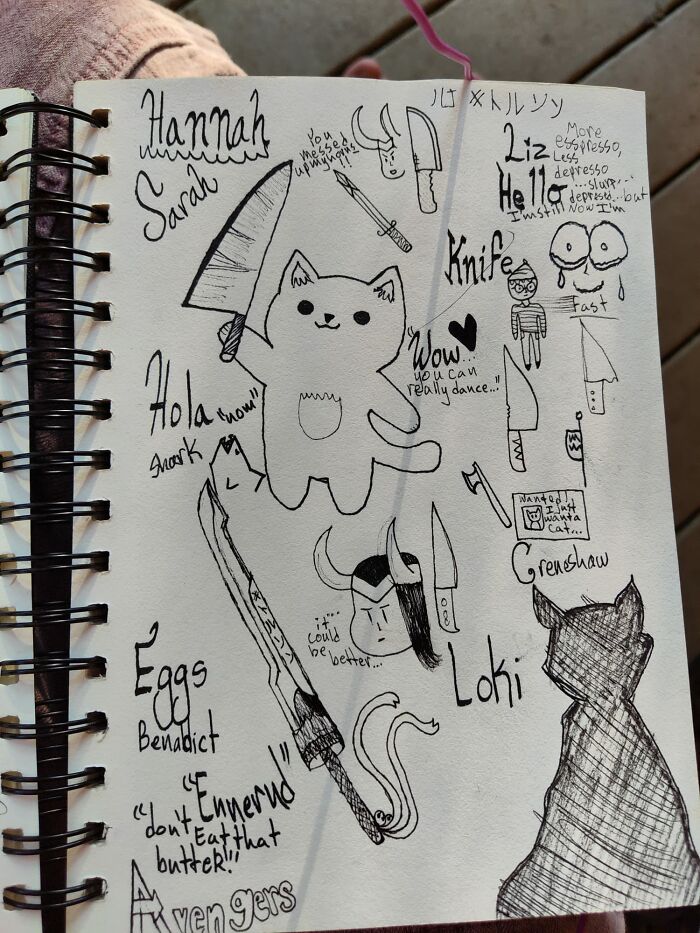 Hannah
Sarah
You
messed
up my horns
Liz
Hello
More
esspresso,
Less
depresso
...slurp...
depresed...but
I'm still Now I'm
fast
Knife
"Wow...
you can
really dance..."
Hola
"now"
shark
wanted!
I just
wanta
cat...
Greneshaw
it
could
be
better...
Loki
Eggs
Benadict
"Ennerud"
"don't
Eat that
butter!"
Avengers